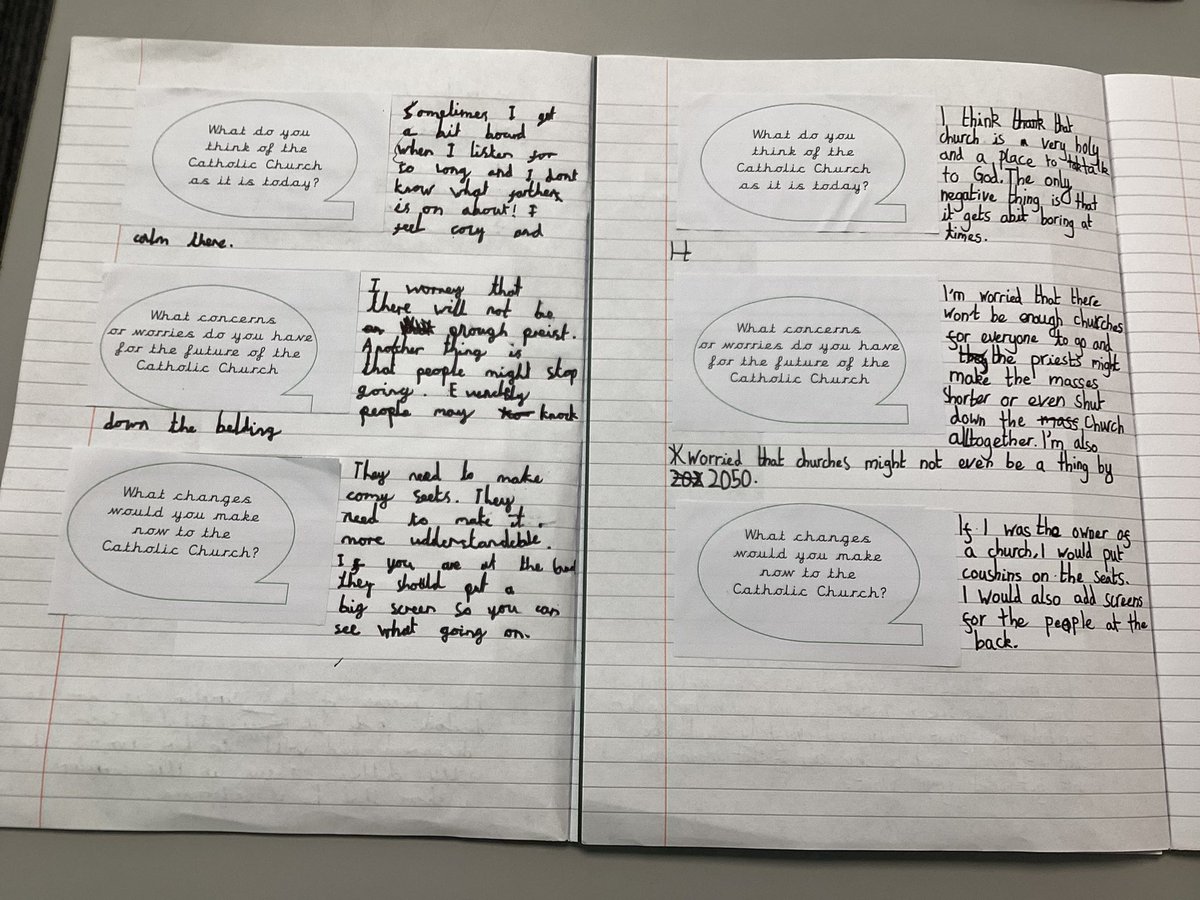 What do you
think of the
Catholic Church
as it is today?
Sometimes I get
a bit board
when I listen for
so long and I dont
know what farthers
is on about! I
feel cozy and
calm there.
What concerns
or worries do you have
for the future of the
Catholic Church
I worrey that
there will not be
grough preist.
Another thing is
that people might stop
going. Evendely
people may knock
down the belding
What changes
would you make
now to the
Catholic Church?
They need to make
comy seets. They
need to make it
more udderstandeble.
If you are at the bac
they should put a
big screen so you can
see what going on.
What do you
think of the
Catholic Church
as it is today?
I think thank that
church is a very holy
and a place to talk
to God. The only
negative thing is that
it gets abit boring at
times.
H
What concerns
or worries do you have
for the future of the
Catholic Church
I'm worried that there
won't be enough churches
for everyone to go and
the priests might
make the masses
shorter or even shut
down the mass Church
alltogether. I'm also
worried that churches might not even be a thing by
2050.
What changes
would you make
now to the
Catholic Church?
If I was the owner of
a church, I would put
coushins on the seats.
I would also add screens
for the people at the
back.